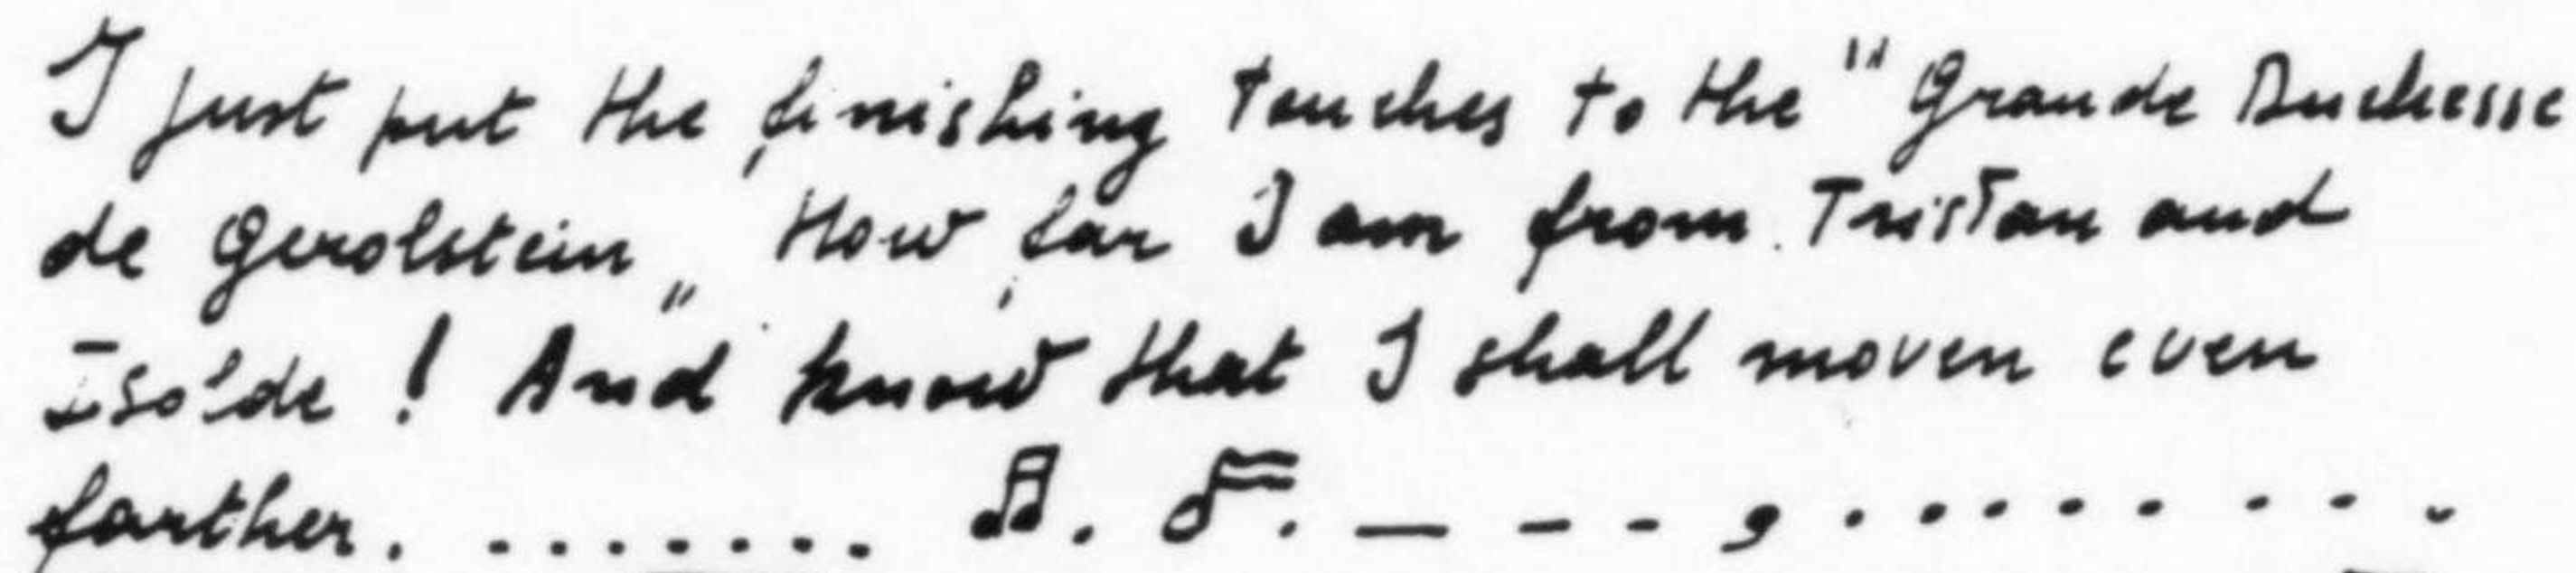 I just put the finishing touches to the "Grande Duchesse
de Gerolstein„ How far I am from Tristan and
Isolde! And know that I shall moven even
farther. ....... ♫. ♬. — - - , ........